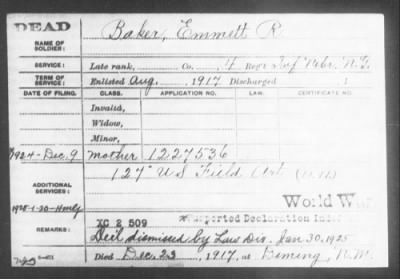 DEAD
NAME OF SOLDIER: Baker, Emmett R.
SERVICE: Late rank, Co. 4 Reg't Inf Nebr. N.G.
TERM OF SERVICE: Enlisted Aug. 1917 Discharged , 1
DATE OF FILING. CLASS. APPLICATION NO. LAW. CERTIFICATE NO.
Invalid,
Widow,
Minor,
1924-Dec. 9 Mother 1227536
127" US Field Art (WW)
ADDITIONAL SERVICES: World War
1925-1-30-
REMARKS: XC 2 509 Reported Declaration Index
Decl dismissed by Law Div. Jan 30, 1925
Died Dec. 23, 1917, at Deming, N.M.